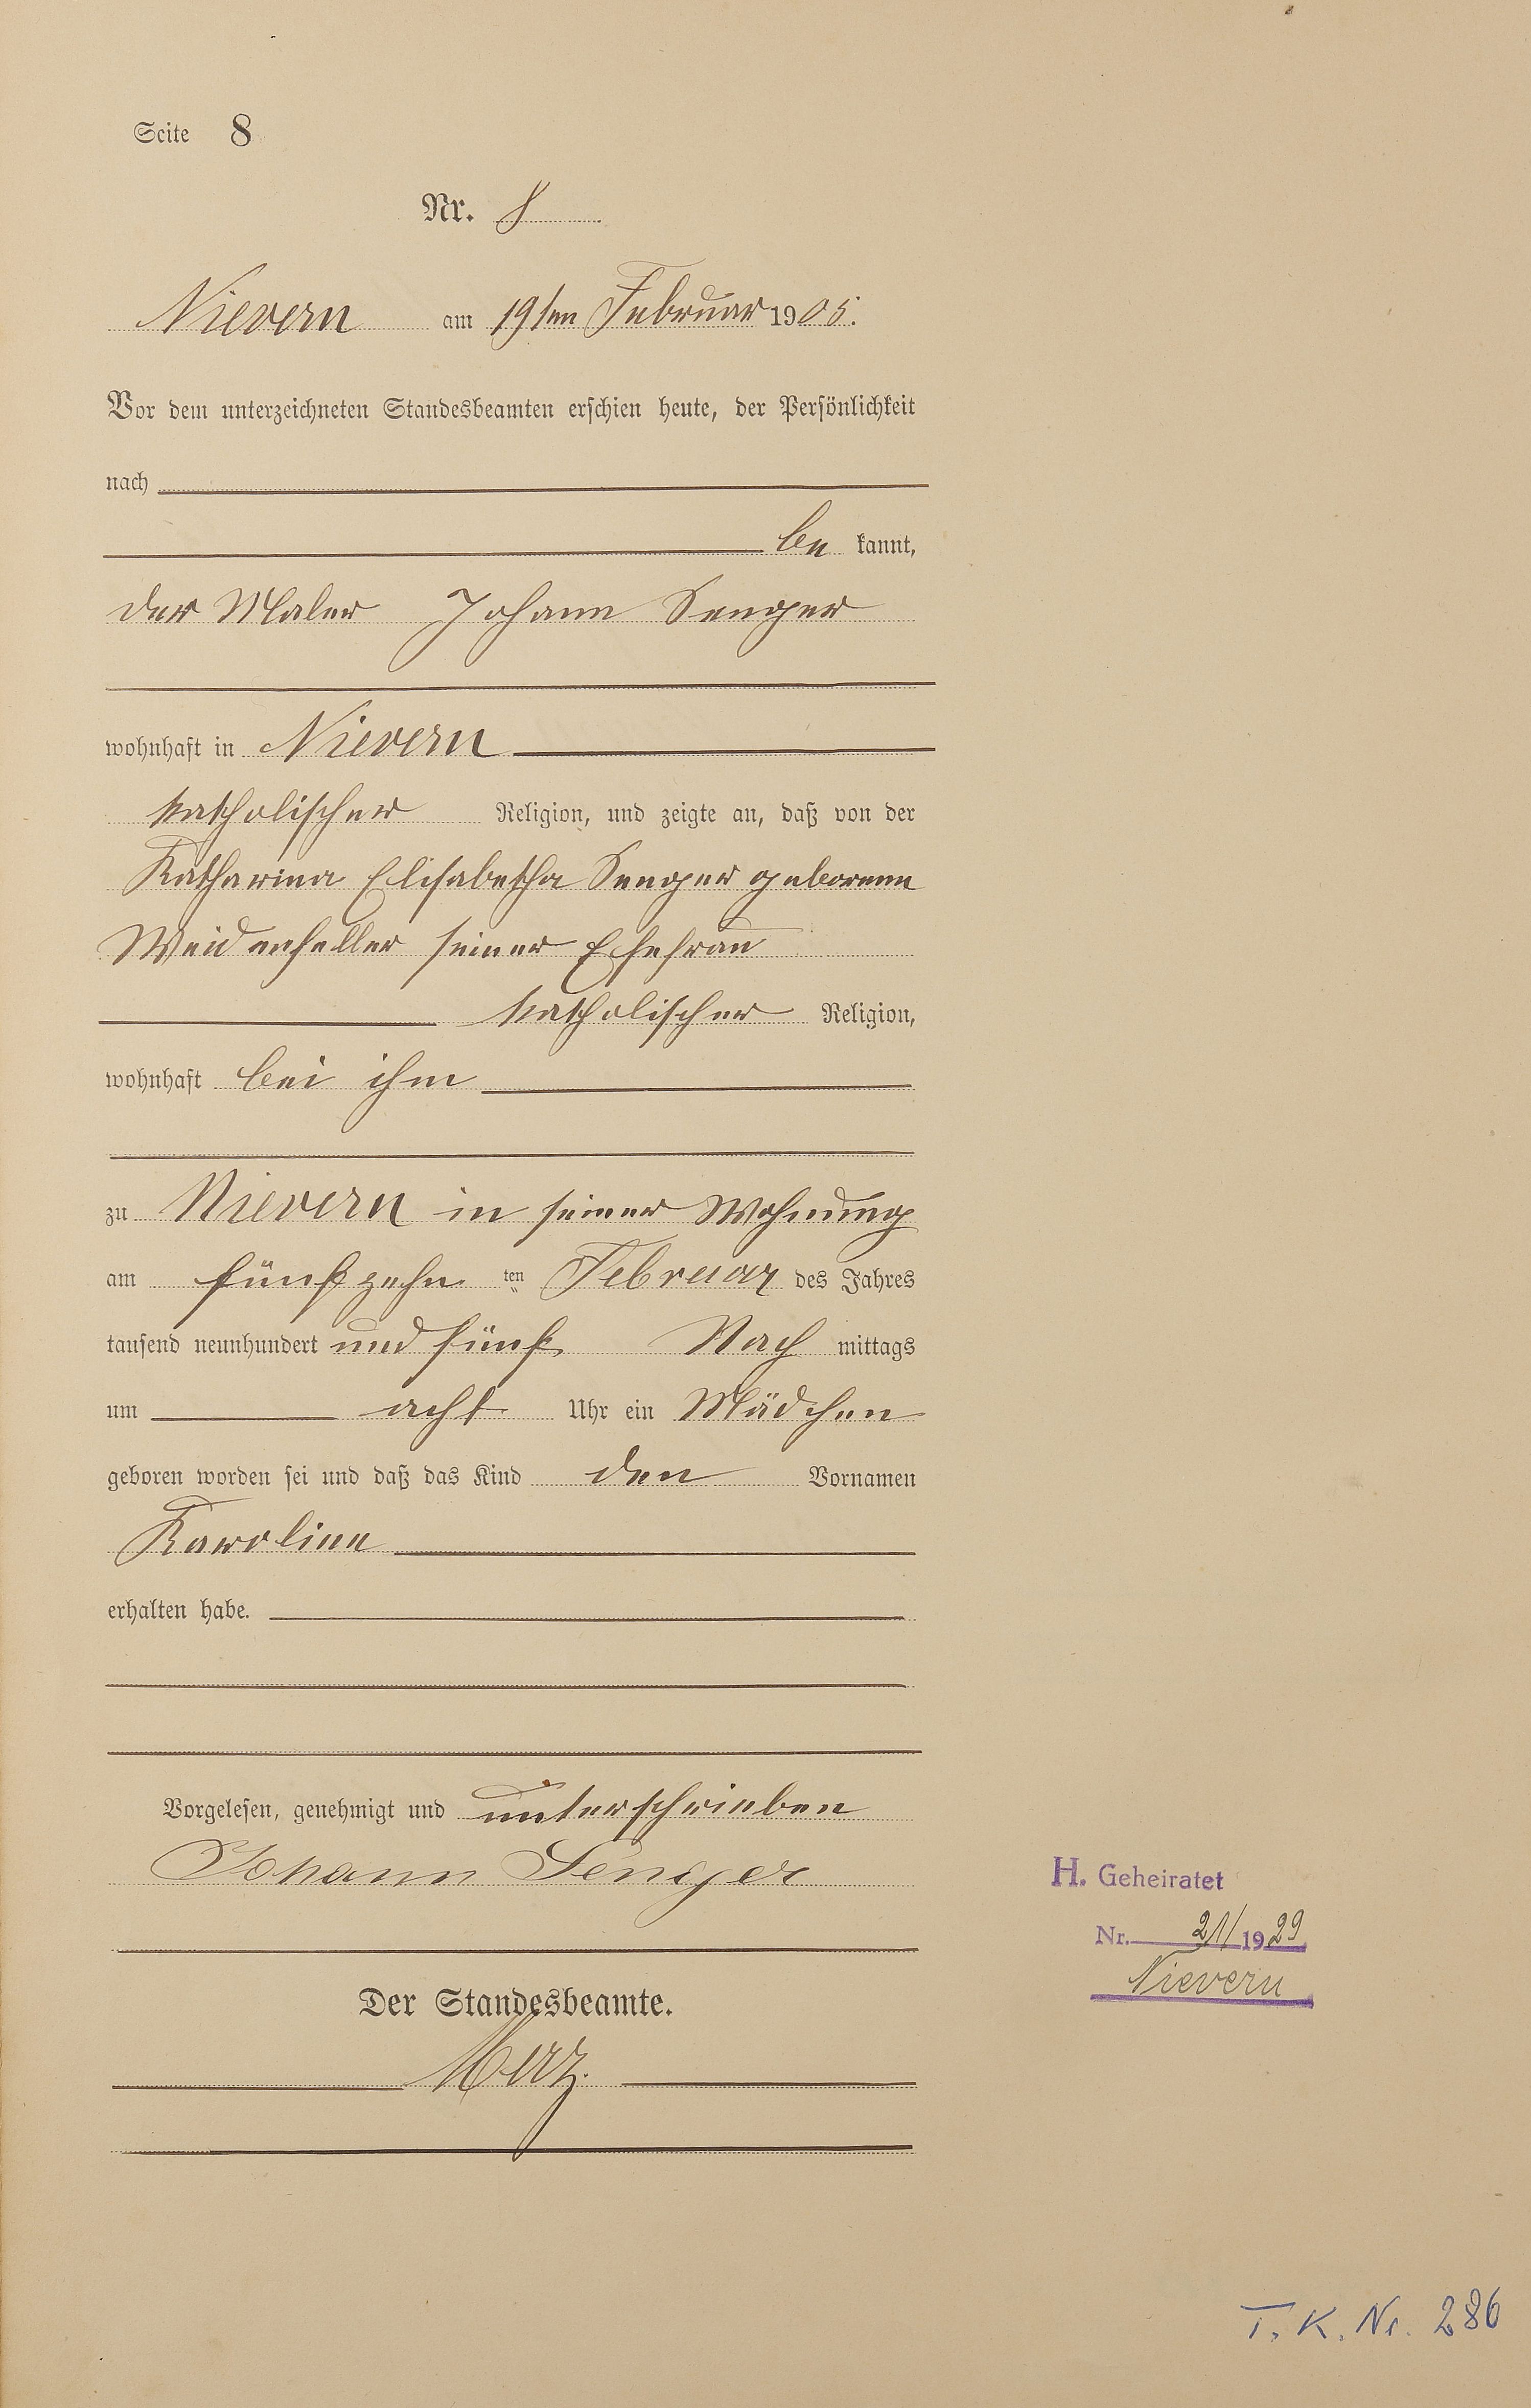 Seite 8
Nr. 8
Nievern am 19ten Februar 1905.
Vor dem unterzeichneten Standesbeamten erschien heute, der Persönlichkeit
nach
be kannt,
der Maler Johann Senger
wohnhaft in Nievern
katholischer Religion, und zeigte an, daß von der
Katharina Elisabetha Senger geborenen
Weidenfeller seiner Ehefrau
katholischer Religion,
wohnhaft bei ihm
zu Nievern in seiner Wohnung
am fünfzehn ten Februar des Jahres
tausend neunhundert und fünf Nach mittags
um acht Uhr ein Mädchen
geboren worden sei und daß das Kind den Vornamen
Karoline
erhalten habe.
Vorgelesen, genehmigt und unterschrieben
Johann Senger
Der Standesbeamte.
Merz.
H. Geheiratet
Nr. 21/1929
Nievern
T. K. Nr. 286